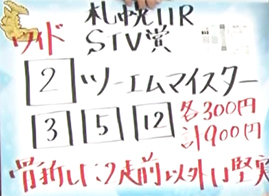 札幌11R
ワイド STV賞
2 ツーエムマイスター
3 5 12 各300円
計900円
骨折した2走前以外は堅実